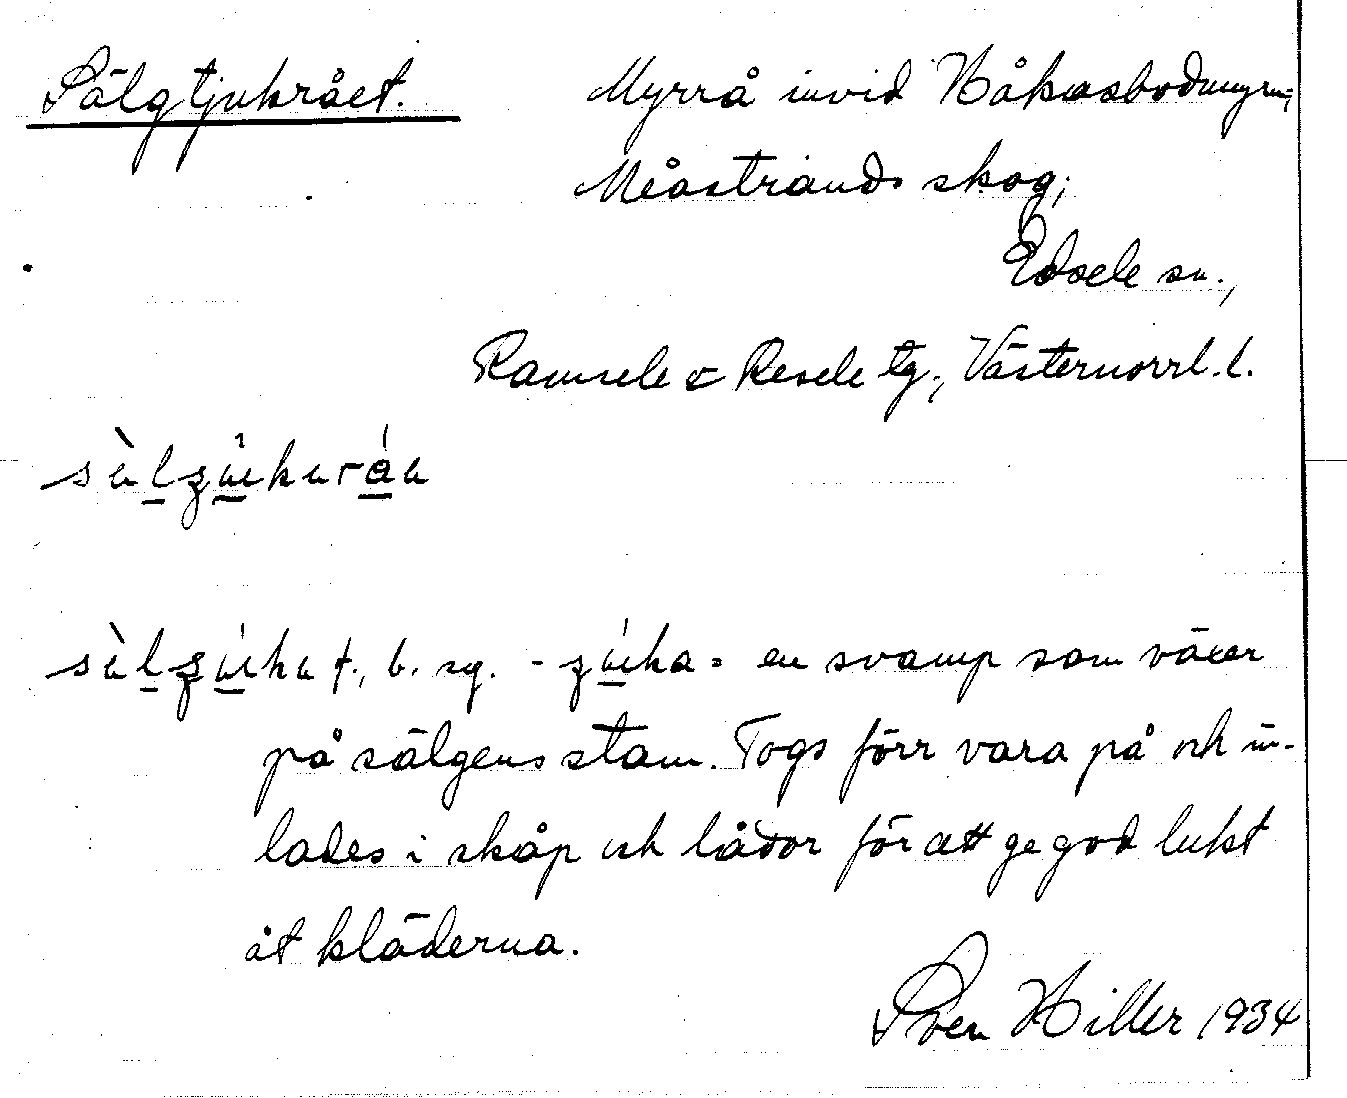 Sälgtjukrået. Myrrå invid Håkasbodmyrn,
Meåstrands skog;
Edsele sn.,
Ramsele & Resele tg., Västernorrl. l.
f., b. sg. - = en svamp som växer
på sälgens stam. Togs förr vara på och in-
lades i skåp och lådor för att ge god lukt
åt kläderna.
Sven Hiller 1934